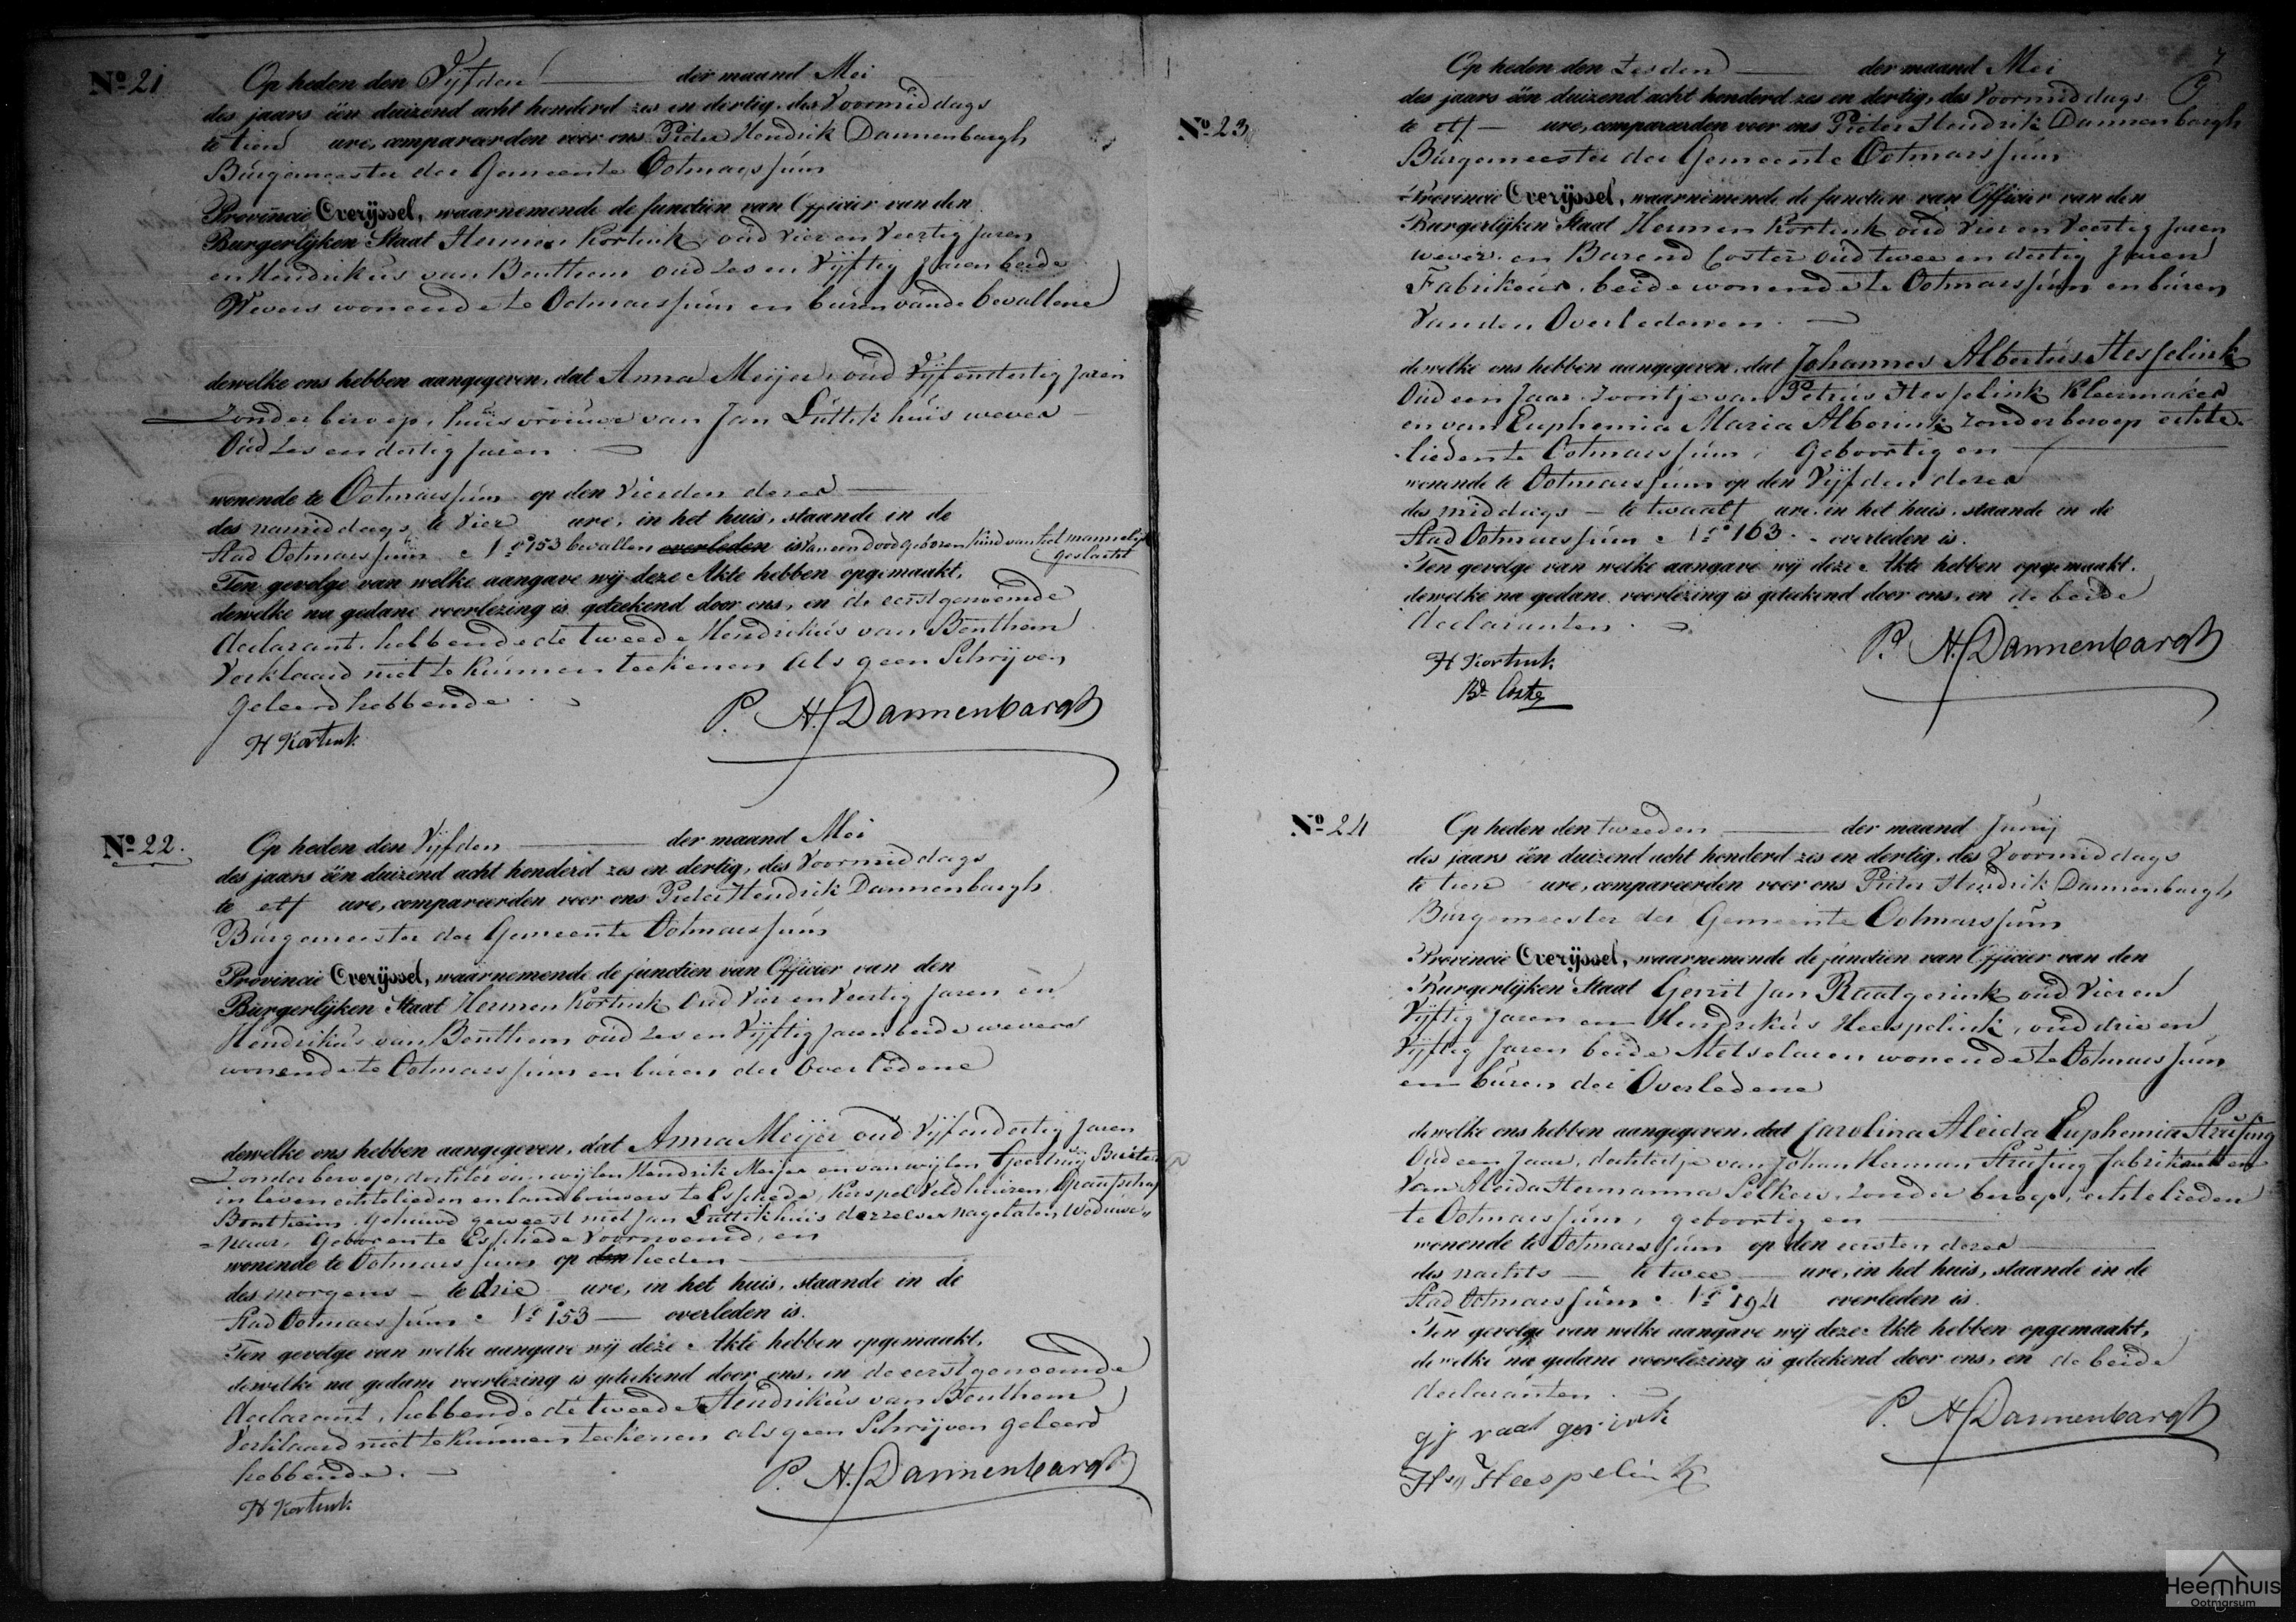 Nº 21
Op heden den Vijfden der maand Mei
des jaars één duizend acht honderd zes en dertig, des Voormiddags
te tien ure, compareerden voor ons Pieter Hendrik Dannenbargh
Burgemeester der Gemeente Ootmarssum
Provincie Overijssel, waarnemende de functien van Officier van den
Burgerlijken Staat Hermen Kortink, oud Vier en Veertig Jaren
en Hendrikus van Benthem oud Zes en Vijftig Jaren beide
Wevers wonende te Ootmarssum en buren van de bevallene
dewelke ons hebben aangegeven, dat Anna Meijer, oud Vijf en dertig Jaren
Zonder beroep, huisvrouwe van Jan Luttikhuis wever
Oud Zes en dertig Jaren
wonende te Ootmarssum op den Vierden dezer
des namiddags te Vier ure, in het huis, staande in de
Stad Ootmarssum Nº 153 bevallen overleden is van een dood geboren kind van het mannelijk
geslacht
Ten gevolge van welke aangave wij deze Akte hebben opgemaakt,
dewelke na gedane voorlezing is geteekend door ons, en de eerstgenoemde
declarant, hebbende de tweede Hendrikus van Benthem
Verklaard niet te kunnen teekenen als geen Schrijven
geleerd hebbende
P. H. Dannenbargh
H Kortink
Nº 22.
Op heden den Vijfden der maand Mei
des jaars één duizend acht honderd zes en dertig, des Voormiddags
te elf ure, compareerden voor ons Pieter Hendrik Dannenbargh
Burgemeester der Gemeente Ootmarssum
Provincie Overijssel, waarnemende de functien van Officier van den
Burgerlijken Staat Hermen Kortink Oud Vier en Veertig Jaren en
Hendrikus van Benthem oud Zes en Vijftig Jaren beide wevers
wonende te Ootmarssum en buren der Overledene
dewelke ons hebben aangegeven, dat Anna Meijer oud Vijf en dertig Jaren
Zonder beroep, dochter van wijlen Hendrik Meijer en van wijlen Geertruij
in leven echtelieden en landbouwers te Esschede, Kerspel Veldhuizen, Graafschap
Bentheim, gehuwd geweest met Jan Luttikhuis deszelver nagelaten Weduwe-
naar, Geboren te Esschede Voornoemd, en
wonende te Ootmarssum op den heden
des morgens te drie ure, in het huis, staande in de
Stad Ootmarssum Nº 153 overleden is.
Ten gevolge van welke aangave wij deze Akte hebben opgemaakt,
dewelke na gedane voorlezing is geteekend door ons, en de eerstgenoemde
declarant, hebbende de tweede Hendrikus van Benthem
Verklaard niet te kunnen teekenen als geen Schrijven geleerd
hebbende.
P. H. Dannenbargh
H Kortink
Nº 23
Op heden den Zesden der maand Mei
des jaars één duizend acht honderd zes en dertig, des Voormiddags
te elf ure, compareerden voor ons Pieter Hendrik Dannenbargh
Burgemeester der Gemeente Ootmarssum
Provincie Overijssel, waarnemende de functien van Officier van den
Burgerlijken Staat Hermen Kortink oud Vier en Veertig Jaren
wever en Barend Coster oud twee en dertig Jaren
Fabrikeur, beide wonende te Ootmarssum en buren
Van den Overledenen.
dewelke ons hebben aangegeven, dat Johannes Albertus Hesselink
Oud een Jaar Zoontje van Petrus Hesselink Kleermaker
en van Euphemia Maria Alberink zonder beroep echte-
lieden te Ootmarssum, Geboortig en
wonende te Ootmarssum op den Vijfden dezer
des middags te twaalf ure, in het huis, staande in de
Stad Ootmarssum Nº 163. overleden is.
Ten gevolge van welke aangave wij deze Akte hebben opgemaakt,
dewelke na gedane voorlezing is geteekend door ons, en de beide
declaranten.
P. H. Dannenbargh
H Kortink
Bd Coster
Nº 24
Op heden den tweeden der maand Junij
des jaars één duizend acht honderd zes en dertig, des Voormiddags
te tien ure, compareerden voor ons Pieter Hendrik Dannenbargh
Burgemeester der Gemeente Ootmarssum
Provincie Overijssel, waarnemende de functien van Officier van den
Burgerlijken Staat Gerrit Jan Raatgerink oud Vier en
Vijftig Jaren en Hendrikus Heespelink, oud drie en
Vijftig Jaren beide Metselaren wonende te Ootmarssum
en buren der Overledene
dewelke ons hebben aangegeven, dat Carolina Aleida Euphemia Strusing
Oud een Jaar, dochtertje van Johan Herman Strusing fabrikeur en
Van Aleida Hermanna Selker, zonder beroep, echtelieden
te Ootmarssum, geboortig en
wonende te Ootmarssum op den eersten dezer
des nachts te twee ure, in het huis, staande in de
Stad Ootmarssum Nº 194 overleden is.
Ten gevolge van welke aangave wij deze Akte hebben opgemaakt,
dewelke na gedane voorlezing is geteekend door ons, en de beide
declaranten.
P. H. Dannenbargh
gj raat gerink
Hs Heespelink
Heemhuis
Ootmarsum